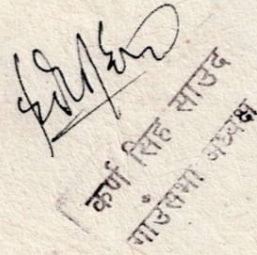 कर्ण सिंह साउद
गाउंसभा अध्यक्ष